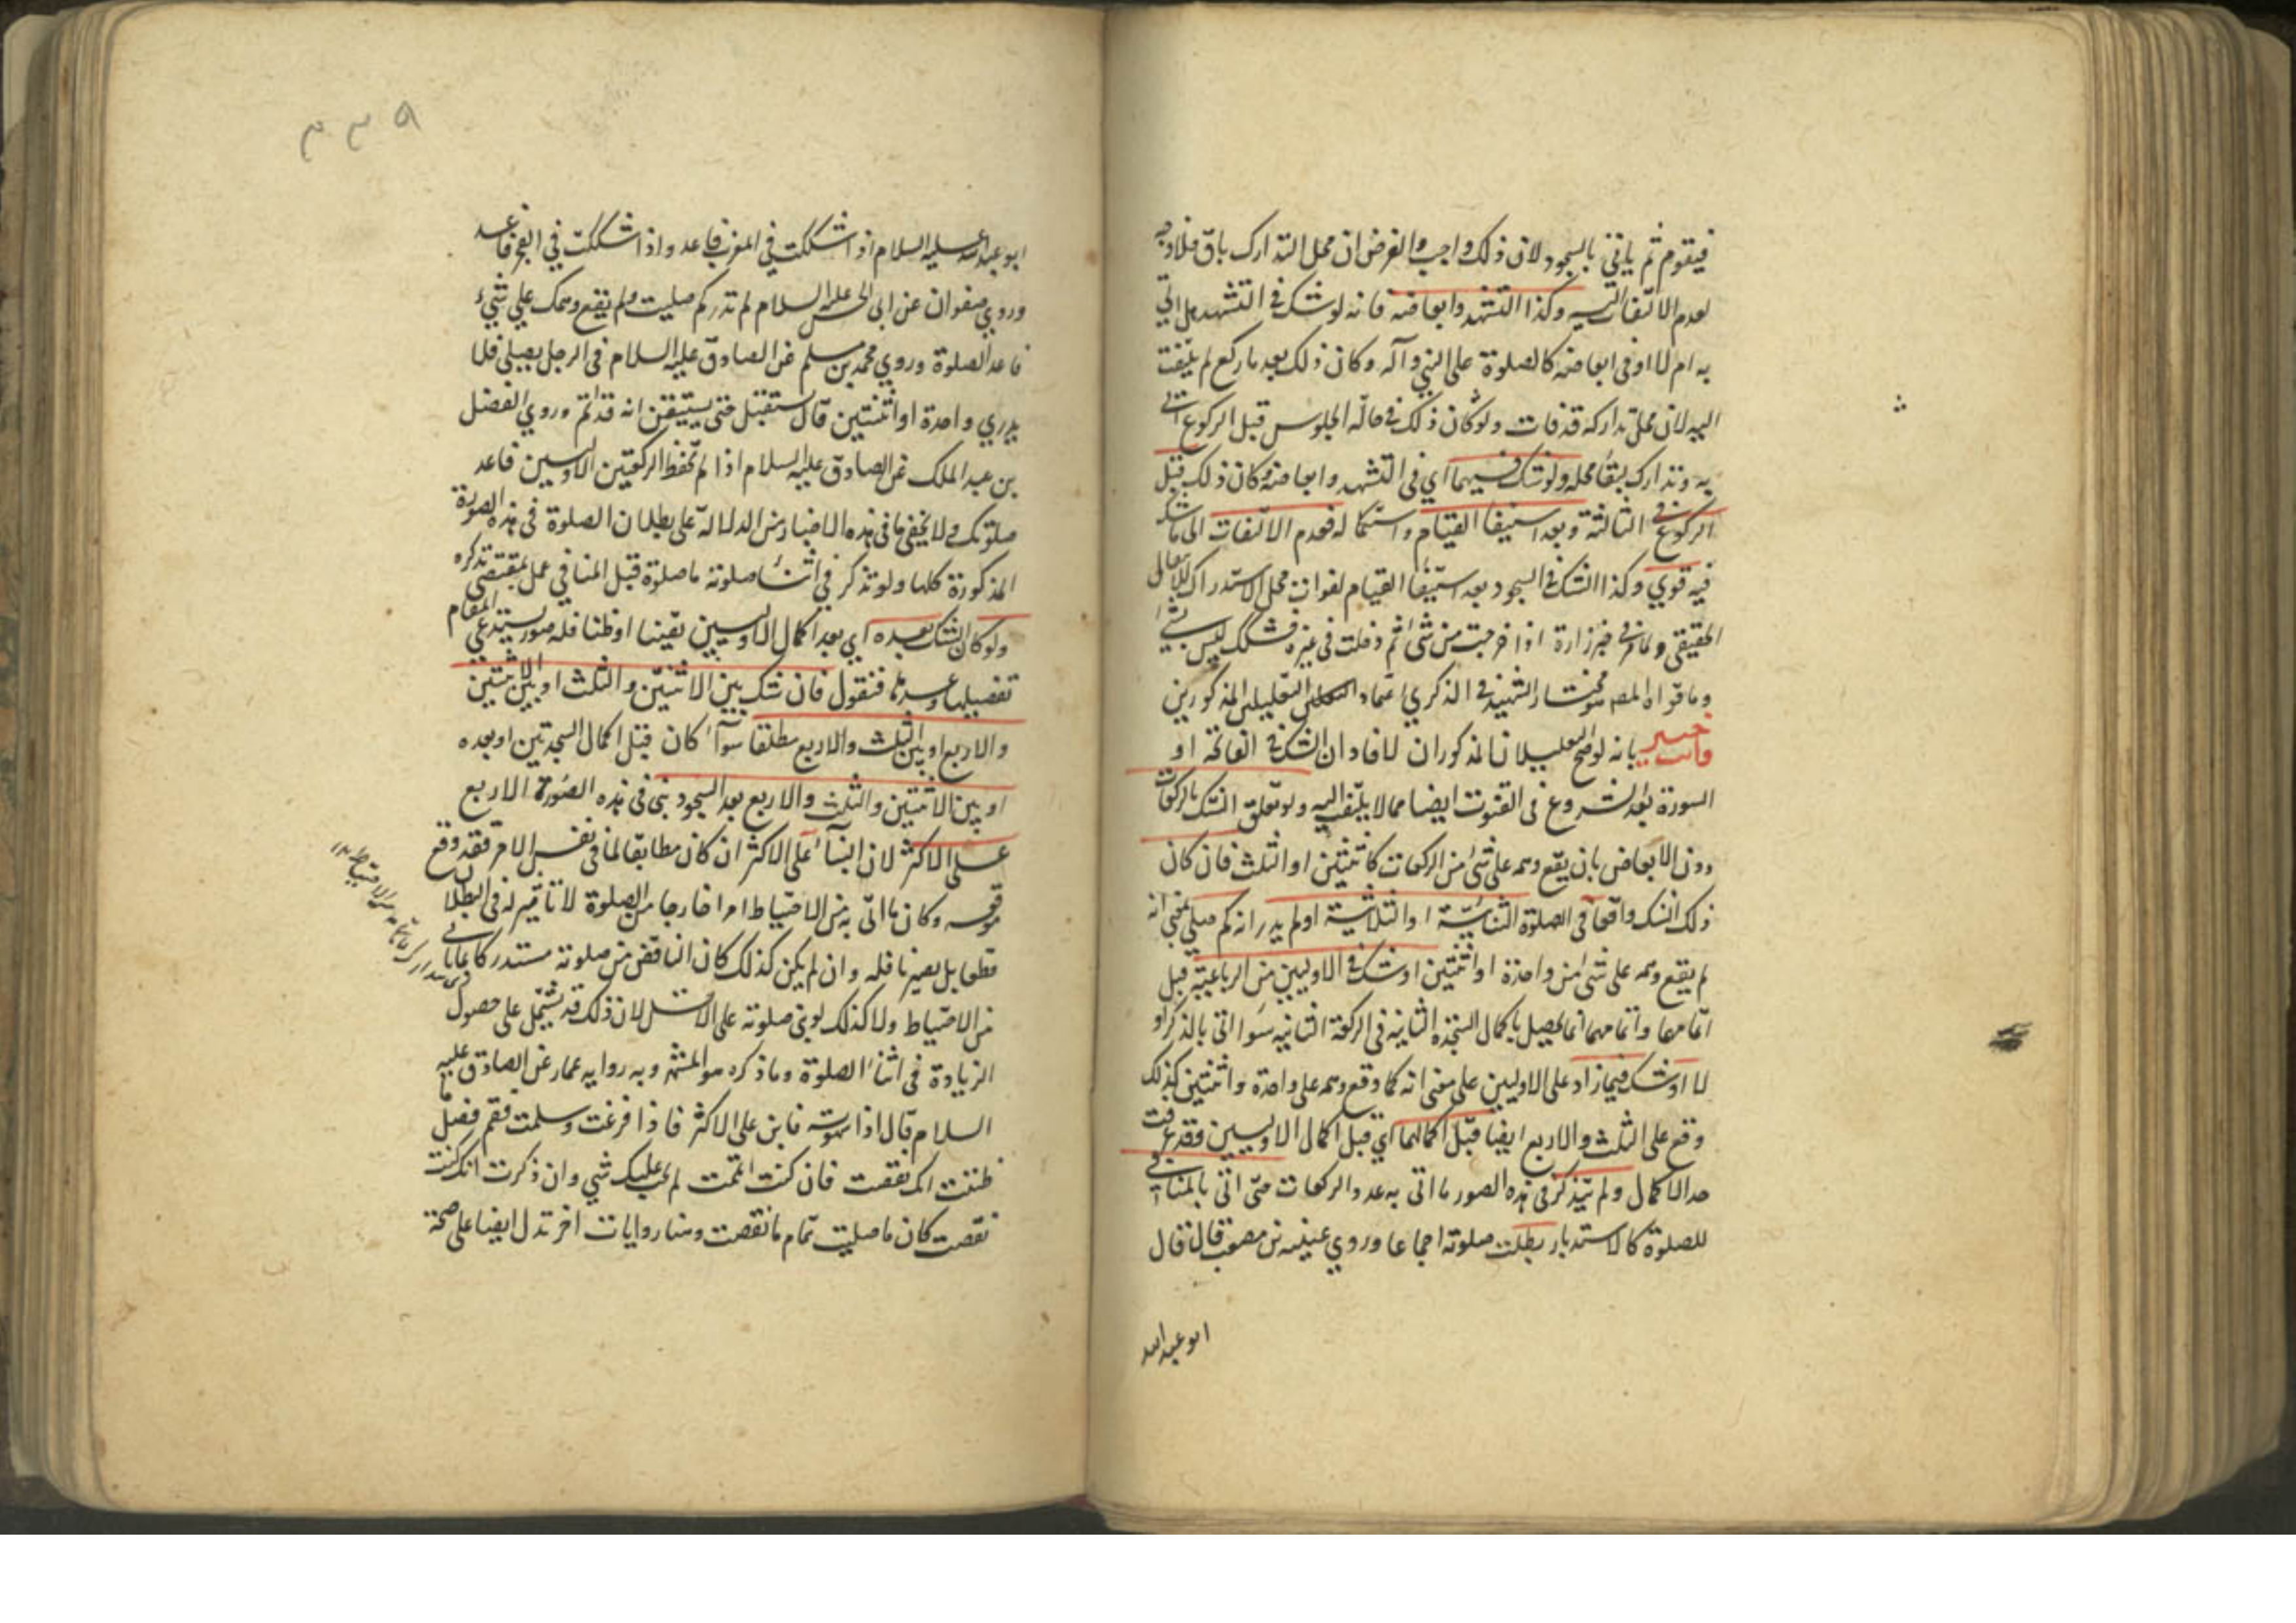 فيقوم ثم ياتي بالسجود لان ذلك واجب والفرض ان محل التدارك باق فلا وجه
لعدم الالتفات اليه وكذا التشهد وابعاضه فانه لو شك في التشهد هل اتي
به ام لا او في ابعاضه كالصلوة على النبي وآله وكان ذلك بعد ما ركع لم يلتفت
اليه لان محل تداركه قد فات ولو كان ذلك في حالة الجلوس قبل الركوع اتي
به وتدارك لبقاء محله ولو شك فيهما اي في التشهد وابعاضه وكان ذلك قبل
الركوع في الثالثة وبعد استيفاء القيام واستكماله فعدم الالتفات الى ما شك
فيه قوي وكذا الشك في السجود بعد استيفاء القيام لفوات محل الاستدراك
الحقيقي ولما مر في خبر زرارة اذا خرجت من شئ ثم دخلت في غيره فشكك ليس بشئ
وما قواه المصـ هو مختار الشهيد في الذكري اعتمادا التعليلين المذكورين
وانت خبير بانه لو صح التعليلان المذكوران لافاد ان الشك في الفاتحة او
السورة بعد الشروع في القنوت ايضا مما لا يلتفت اليه ولو تعلق الشك بالركعات
دون الابعاض بان يقع وهمه على شئ من الركعات كاثنتين او الثلث فان كان
ذلك الشك واقعا في الصلوة الثنائية او الثلاثية او لم يدر انه كم صلى بمعنى انه
لم يقع وهمه على شئ من واحدة او اثنتين او شك في الاوليين من الرباعية قبل
اتمامهما واتمامهما انما يحصل باكمال السجدة الثانية في الركعة الثانية سواء اتى بالذكر او
لا او شك فيما زاد على الاوليين على معنى انه كما وقع وهمه على واحدة واثنتين كذلك
وقع على الثلث والاربع ايضا قبل اكمالهما اي قبل اكمال الاوليين وقد عرفت
حد الاكمال ولم يتذكر في هذه الصور ما اتى به عدد الركعات حتى اتى بالمنافي
للصلوة كالاستدبار بطلت صلوته اجماعا وروي عنبسة بن مصعب قال قال
ابو عبد الله
٣٣٩
ابو عبد الله عليه السلام اذا شككت في المغرب فاعد واذا شككت في الفجر فاعد
وروي صفوان عن ابي الحسن عليه السلام لم تدر كم صليت ولم يقع وهمك علي شئ
فاعد الصلوة وروي محمد بن مسلم عن الصادق عليه السلام في الرجل يصلي فلا
يدري واحدة او اثنتين قال يستقبل حتى يستيقن انه قد اتم وروي الفضل
بن عبد الملك عن الصادق عليه السلام اذا لم تحفظ الركعتين الاوليين فاعد
صلوتك ولا يخفى ما في هذه الاخبار من الدلالة على بطلان الصلوة في هذه الصورة
المذكورة كلها ولو تذكر في اثناء صلوته ما صلوة قبل المنافي عمل بمقتضى تذكره
ولو كان الشك بعده اي بعد اكمال الاوليين يقينا او ظنا فله صور يستدعي المقام
تفصيلها وسردها فنقول فان شك بين الاثنتين والثلث او بين الاثنتين
والاربع او بين الثلث والاربع مطلقا سواء كان قبل اكمال السجدتين او بعده
او بين الاثنتين والثلث والاربع بعد السجود بنى في هذه الصورة الاربع
على الاكثر لان البناء على الاكثر ان كان مطابقا لما في نفس الامر فقد وقع
موقعه وكان ما اتى به من الاحتياط امرا خارجا من الصلوة لا تاثير له في البطلان
قطعا بل يصير نافله وان لم يكن كذلك كان الناقص من صلوته مستدركا
من الاحتياط ولا كذلك لو بنى صلوته على الاقل لان ذلك قد يشتمل على حصول
الزيادة في اثناء الصلوة وما ذكره هو المشهور وبه رواية عمار عن الصادق عليه
السلام قال اذا سهوت فابن على الاكثر فاذا فرغت وسلمت فقم فصل ما
ظننت انك نقصت فان كنت اتممت لم يكن عليك شي وان ذكرت انك كنت
نقصت كان ما صليت تمام ما نقصت وهنا روايات اخر تدل ايضا على صحة